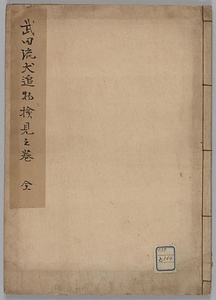 武田流犬追物検見之巻 全